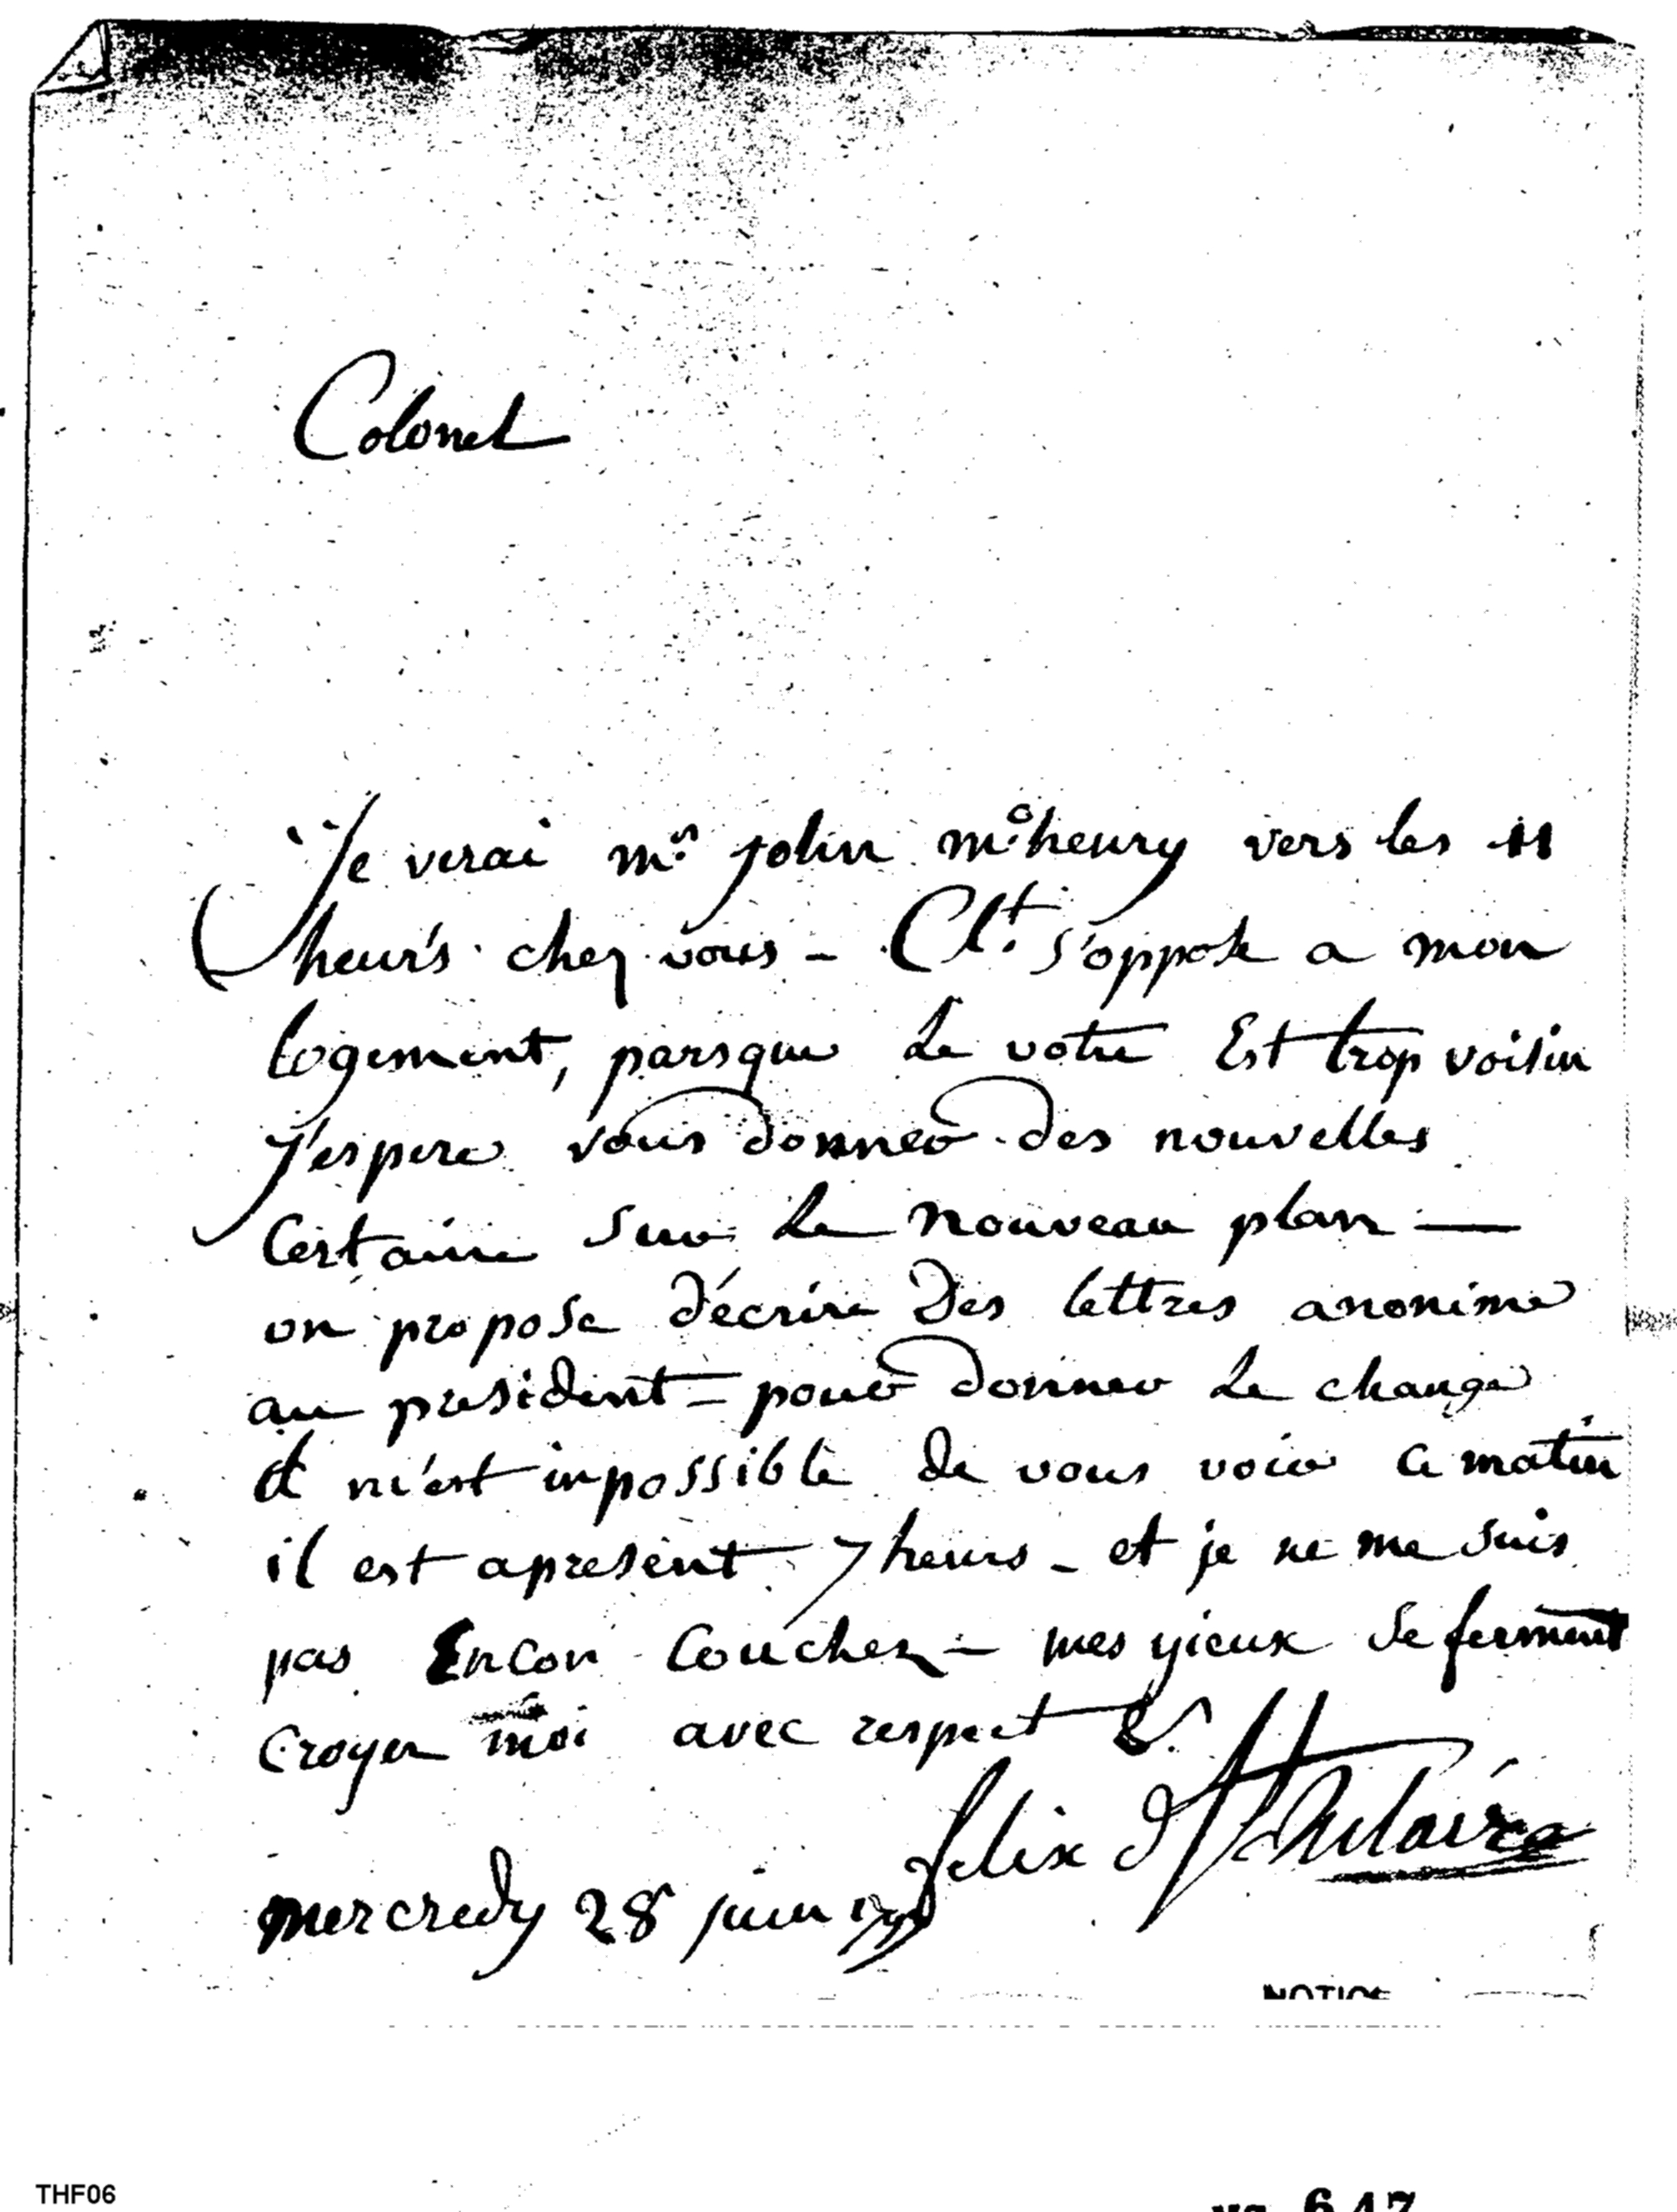 Colonel
Je verai mr. john mc.henry vers les 11
heur's chez vous - Clt. s'oppose a mon
logement, parsque le votre Est trop voisin
j'espere vous donner des nouvelles
Certaine sur le nouveau plan —
on propose d'écrire Des lettres anonime
au president = pour donner le change
il m'est inpossible de vous voir ce matin
il est apresent 7 heurs - et je ne me suis
pas Encor Couchez - mes yieux se ferment
Croyez moi avec respect &.
felix
mercredy 28 juin
NOTICE
THF06
647